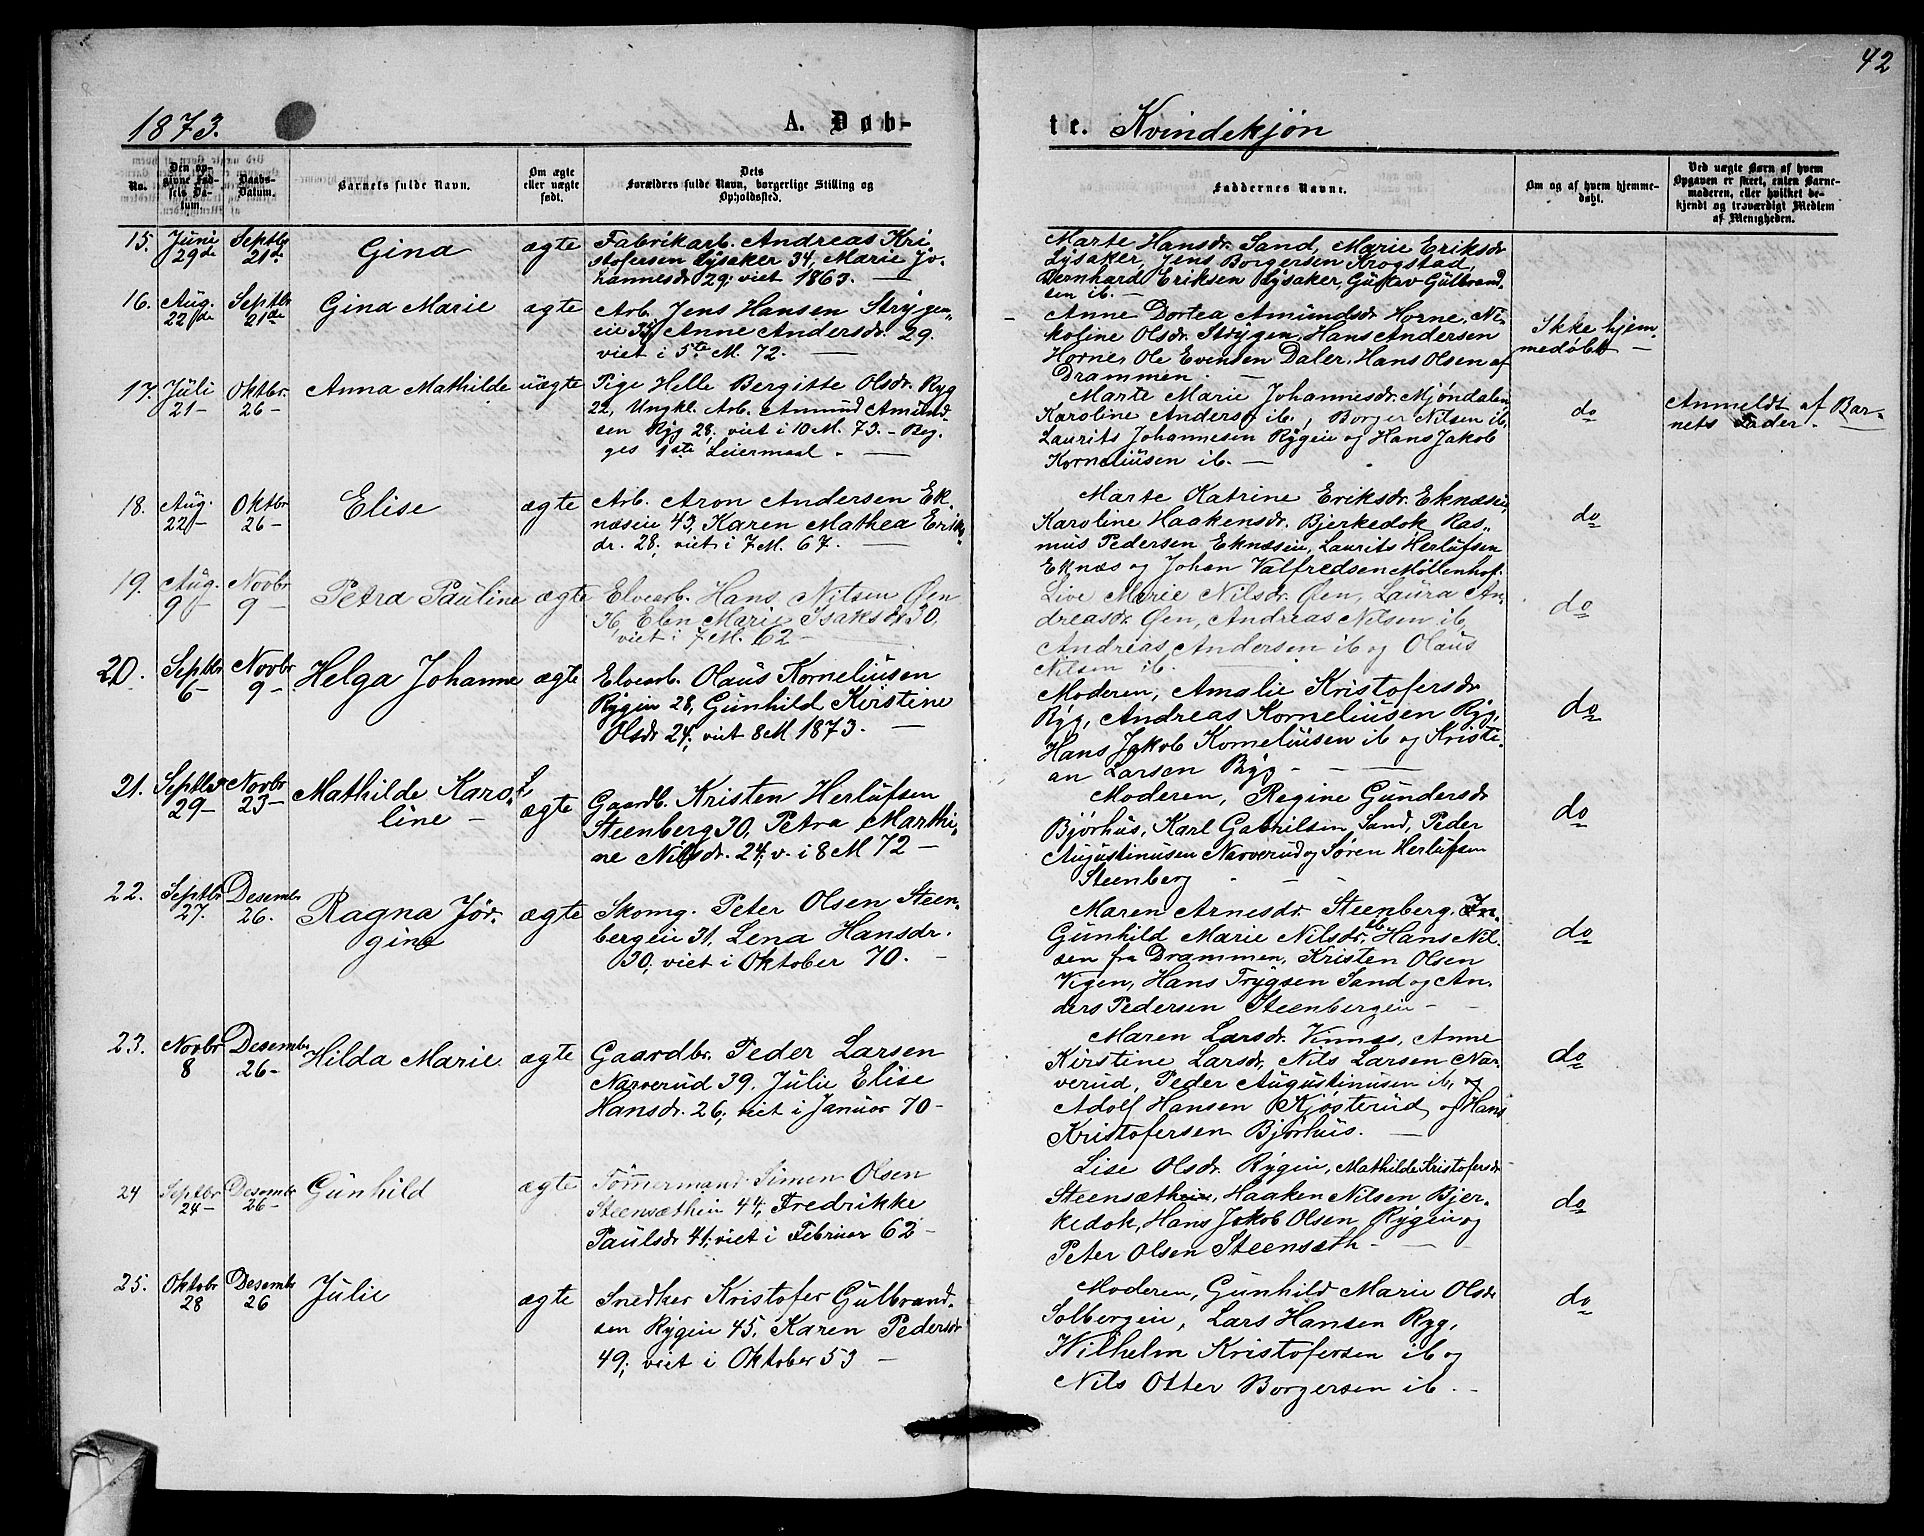 42
1873.
A. Døb-
te. Kvindekjøn
No.
Den op-
givne Fød-
sels Da-
tum.
Daabs-
Datum.
Barnets fulde Navn.
Om ægte
eller uægte
født.
Dets
Forældres fulde Navn, borgerlige Stilling og
Opholdssted.
Faddernes Navne.
Om og af hvem hjemme-
døbt.
Ved uægte Børn af hvem
Opgaven er skeet, enten Barne-
moderen, eller hvilket be-
kjendt og troværdigt Medlem
af Menigheden.
15. Juni 29de Septbr 21de Gina ægte
Fabrikarb. Andreas Kri-
stofersen Lysaker 34, Marie Jo-
hannesdr 29; viet 1863. —
Marte Hansdr. Sand, Marie Eriksdr
Lysaker, Jens Borgersen Krogstad,
Bernhard Eriksen Lysaker, Gustav Gulbrand
sen ib. —
16. Aug. 22de Septbr 21de Gina Marie ægte
Arb. Jens Hansen Strygen-
eie Anne Andersdr. 29.
viet i 5te M. 72. —
Anne Dortea Amundsdr Horne, Ni-
koline Olsdr. Strygen, Hans Andersen
Horne, Ole Evensen Daler, Hans Olsen af
Drammen. —
Ikke hjem-
medøbt —
17. Juli 21- Oktbr. 26- Anna Mathilde uægte
Pige Helle Bergitte Olsdr. Ryg
22, Ungkl. Arb. Amund Amund-
sen Ryg 28, viet i 10 M. 73. - Beg-
ges 1ste Leiermaal. —
Marte Marie Johannesdr. Mjøndalen
Karoline Anders ib., Borger Nilsen ib,
Laurits Johannesen Rygeie og Hans Jakob
Korneliusen ib. —
do
Anmeldt af Bar-
nets Fader. —
18. Aug. 22- Oktbr 26- Elise ægte
Arb. Aron Andersen Ek-
næseie 43, Karen Mathea Eriks-
dr. 28, viet i 7 M. 67. —
Marte Katrine Eriksdr. Eknæseie,
Karoline Haakensdr. Bjerkedok Ras-
mus Pedersen Eknæseie, Laurits Herlufsen
Eknæs og Johan Valfredsen Møllenhof.
do
19. Aug. 9- Novbr 9- Petra Pauline ægte
Elvearb. Hans Nilsen Øen
36, Elen Marie Isaksdr 30,
viet i 7 M. 62 —
Live Marie Nilsdr. Øen, Laura An-
dreasdr. Øen, Andreas Nilsen ib,
Andreas Andersen ib og Olaus
Nilsen ib. —
do
20. Septbr 6- Novbr 9- Helga Johanne ægte
Elvearb. Olaus Korneliusen
Rygeie 28, Gunhild Kirstine
Olsdr 24; viet 8 M 1873. —
Moderen, Amalie Kristofersdr
Ryg, Andreas Korneliusen Ryg,
Hans Jakob Korneliusen ib og Kristi-
an Larsen Ryg - —
do
21. Septbr 29- Novbr 23- Mathilde Karo-
line - ægte
Gaardb. Kristen Herlufsen
Steenberg 30, Petra Marthi-
ne Nilsdr. 24; v. i 8 M 72 —
Moderen, Regine Gundersdr
Bjørhus, Karl Gabrilsen Sand, Peder
Augustinusen Narverud og Søren Herlufsen
Steenberg - —
do
22. Septbr 27. Desembr 26. Ragna Jør-
gine ægte
Skomg. Peter Olsen Steen-
bergeie 31, Lena Hansdr.
30; viet i Oktober 70. —
Maren Arnesdr. Steenberg.
Gunhild Marie Nilsdr. ib Hans Nil-
sen fra Drammen, Kristen Olsen
Vigen, Hans Trygsen Sand og An-
ders Pedersen Steenbergeie —
do
23. Novbr 8 Desembr 26- Hilda Marie ægte
Gaardbr. Peder Larsen
Narverud 39. Julie Elise
Hansdr. 26; viet i Januar 70 -
Maren Larsdr. Vinnæs, Anne
Kirstine Larsdr, Nils Larsen Nar-
verud, Peder Augustinusen ib, og
Adolf Hansen Kjøsterud og Hans
Kristofersen Bjørhus. —
do
24 Septbr 24- Desembr 26- Gunhild ægte
Tømmermand Simen Olsen
Steensætheie 44, Fredrikke
Paulsdr 41; viet i Februar 62 -
Lise Olsdr. Rygeie, Mathilde Kristofersdr
Steensætheie, Haaken Nilsen Bjer-
kedok, Hans Jakob Olsen Rygeie og
Peter Olsen Steensæth - —
do
25. Oktobr 28 Desembr 26 Julie ægte
Snedker Kristofer Gulbrand-
sen Rygeie 45, Karen Pedersdr
49; viet i Oktober 53 —
Moderen, Gunhild Marie Olsdr
Solbergeie, Lars Hansen Ryg,
Wilhelm Kristofersen ib og
Nils Otter Borgersen ib. -
do